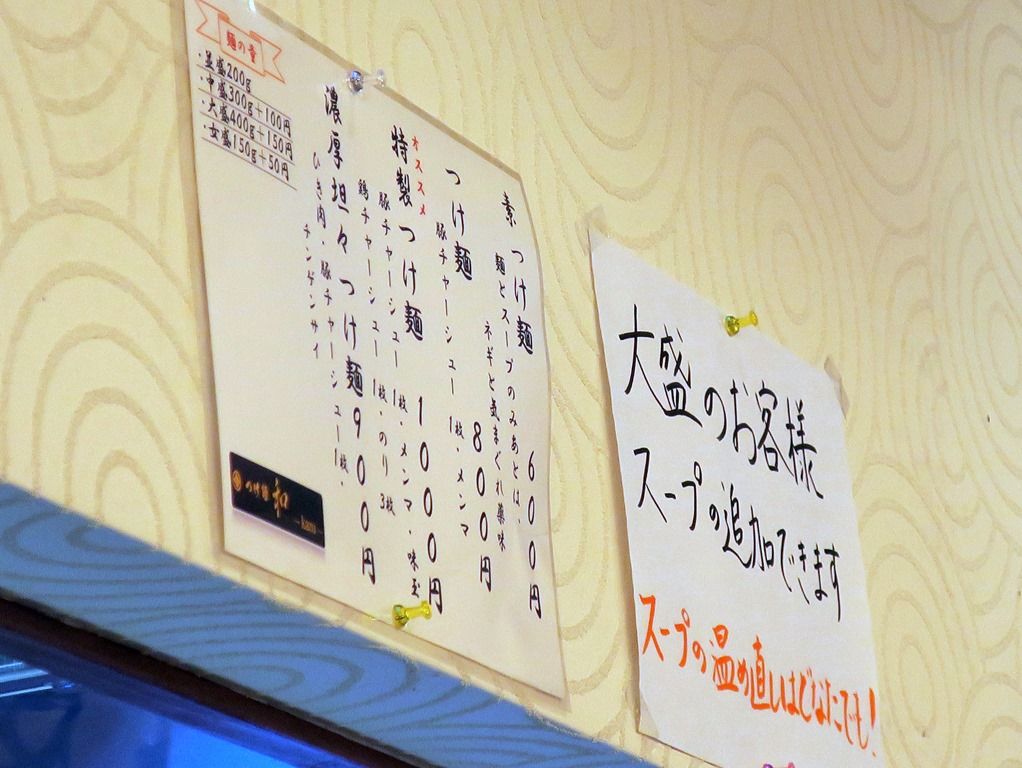 素つけ麺 600円
麺とスープのみあとは、
ネギと気まぐれ薬味
つけ麺 800円
豚チャーシュー1枚・メンマ
オススメ
特製つけ麺 1000円
豚チャーシュー1枚・メンマ・味玉
鶏チャーシュー1枚・のり3枚
濃厚坦々つけ麺 900円
ひき肉・豚チャーシュー1枚・
チンゲンサイ
麺の量
・並盛200g
・中盛300g+100円
・大盛400g+150円
・女盛150g+50円
つけ麺 和
大盛のお客様
スープの追加できます
スープの温め直しはどなたでも!